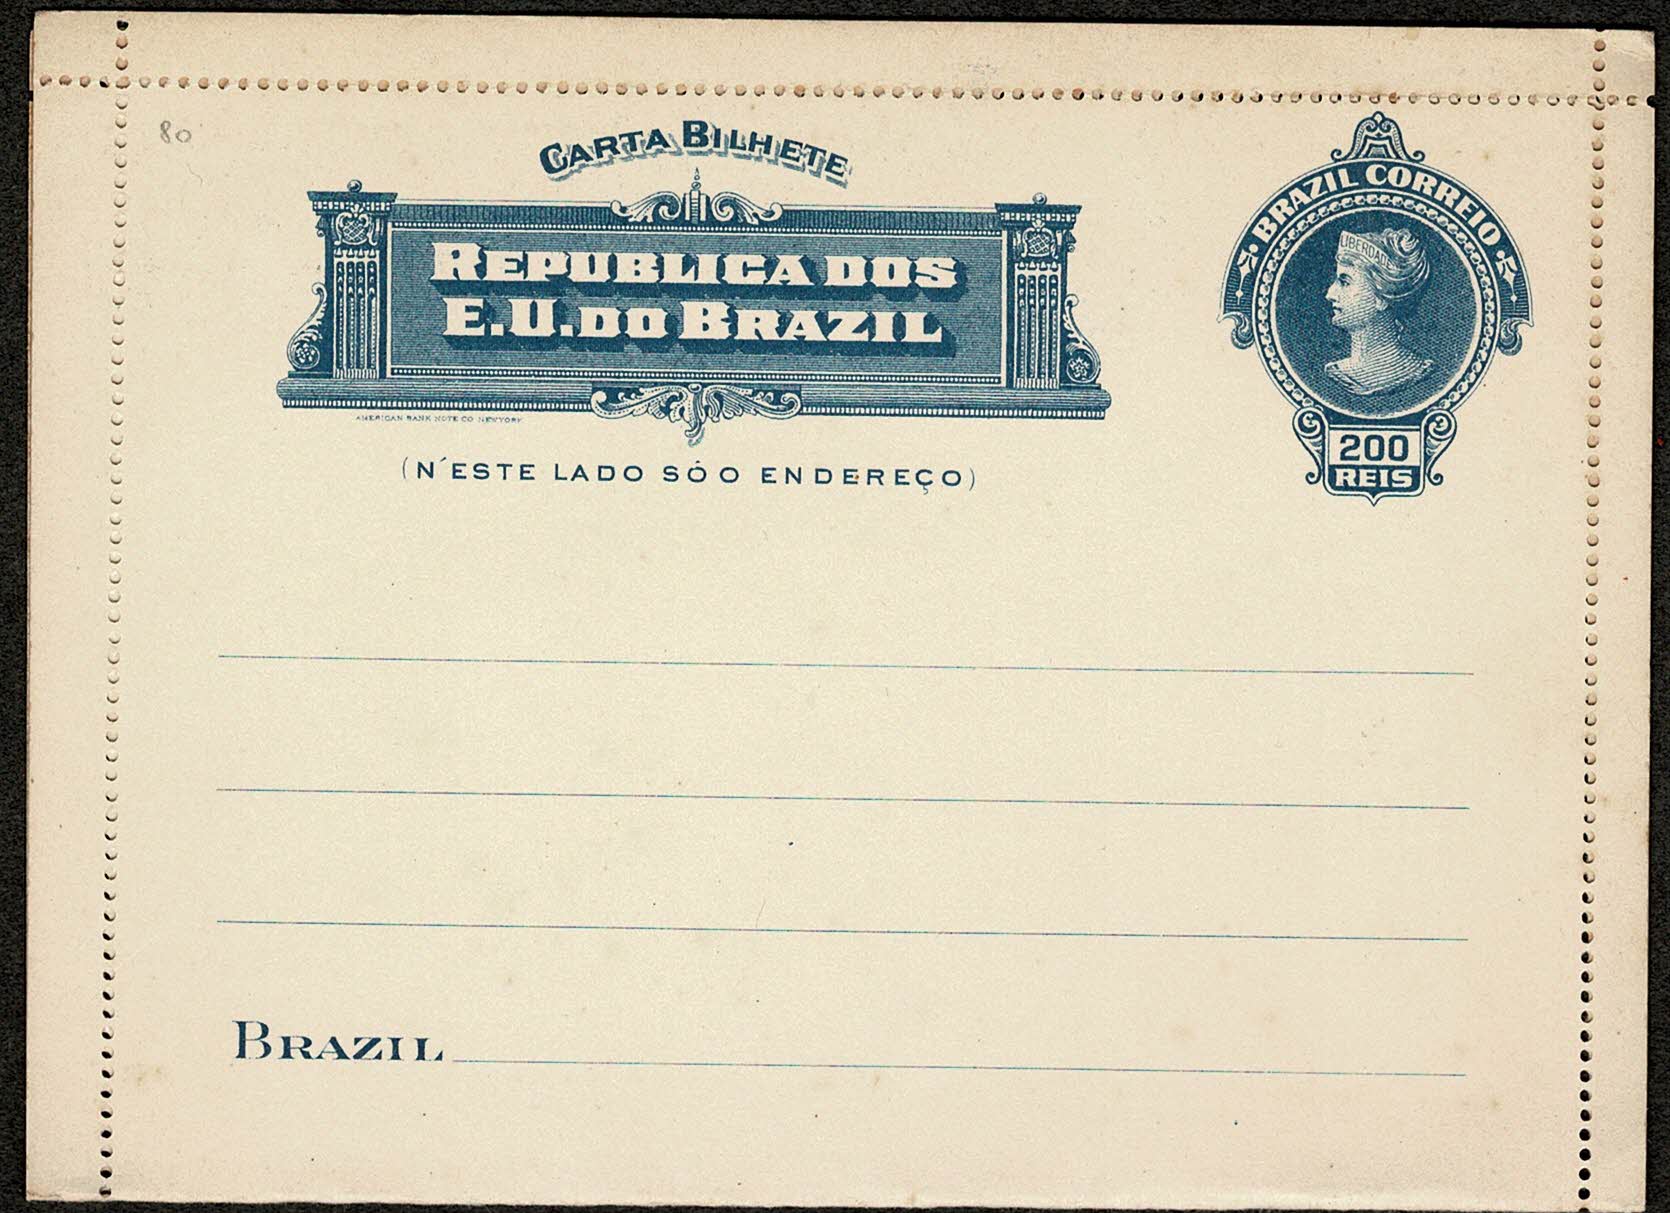 80
CARTA BILHETE
REPUBLICA DOS
E.U. DO BRAZIL
AMERICAN BANK NOTE CO NEW YORK
(N´ESTE LADO SÓ O ENDEREÇO)
BRAZIL CORREIO
LIBERDADE
200
REIS
BRAZIL